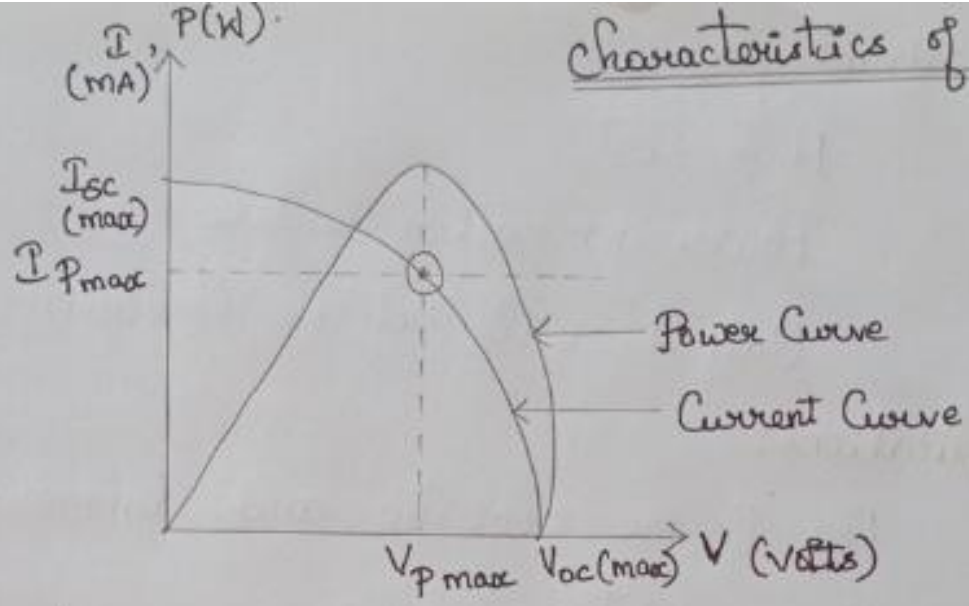 I, P(W).
(mA)
Characteristics of
Isc
(max)
I Pmax
Power Curve
Current Curve
VP max Voc(max) V (volts)